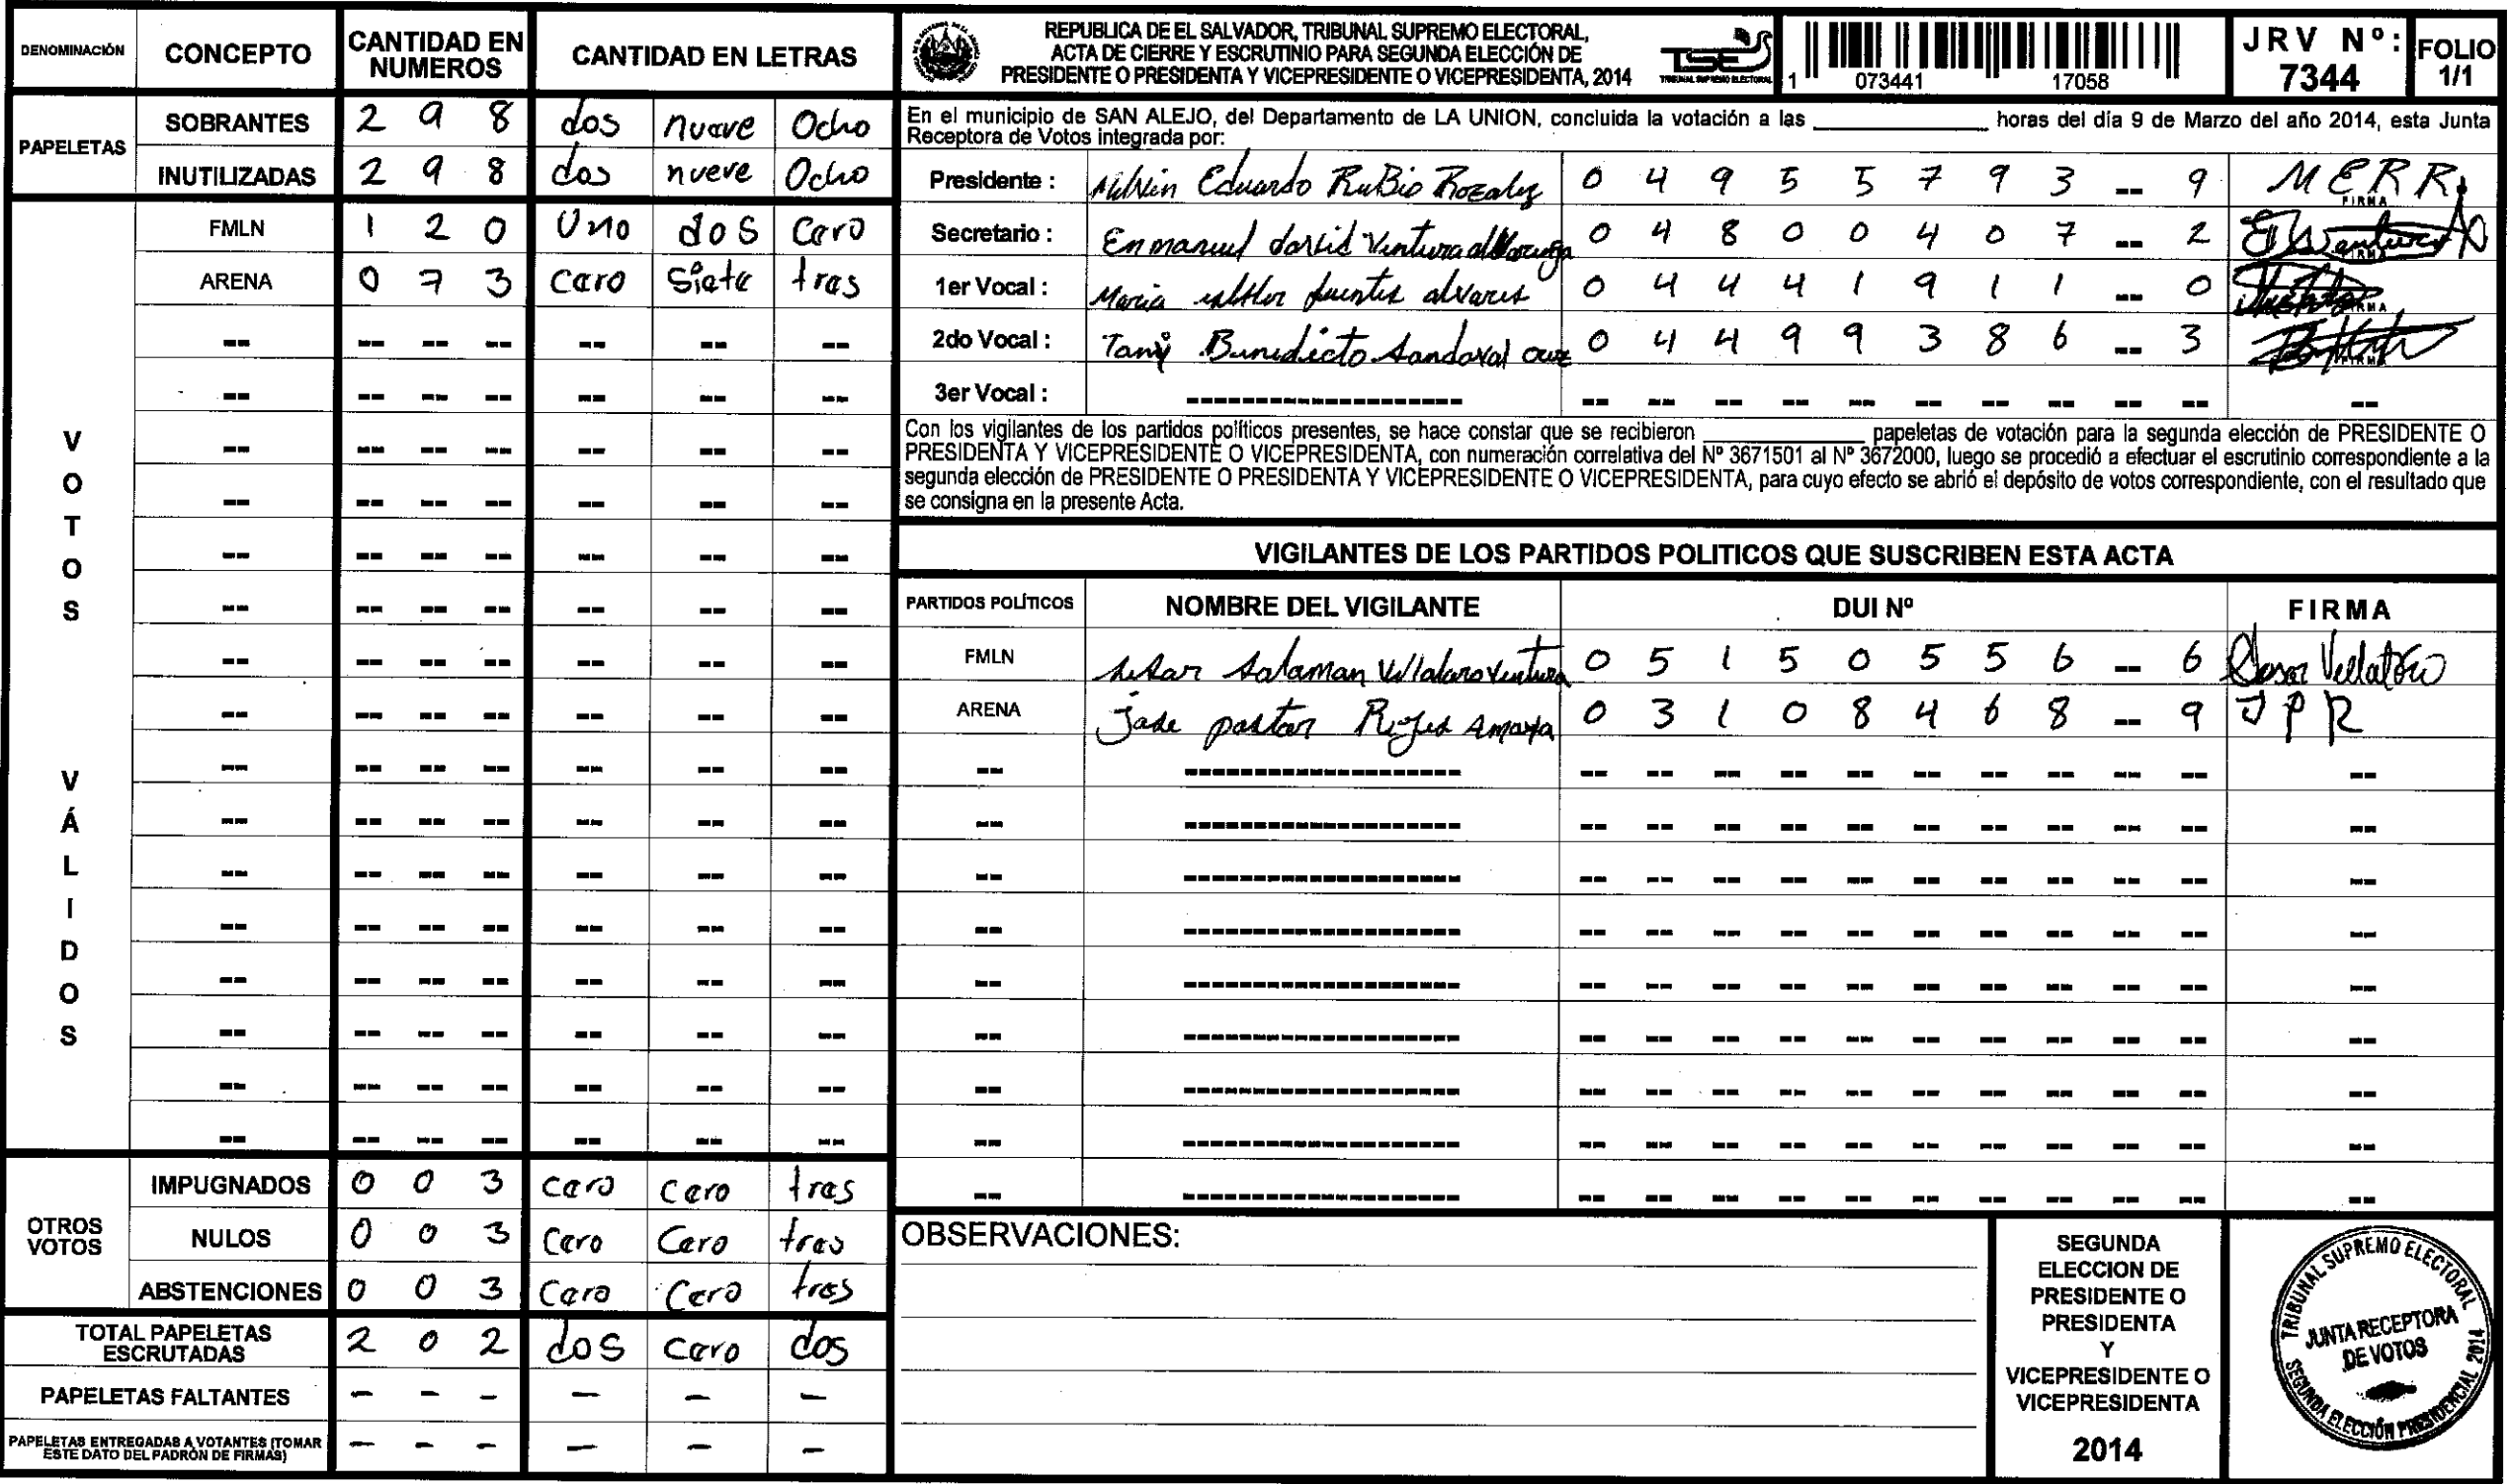 DENOMINACIÓN CONCEPTO CANTIDAD EN NUMEROS CANTIDAD EN LETRAS
PAPELETAS
SOBRANTES 2 9 8 dos nueve Ocho
INUTILIZADAS 2 9 8 dos nueve Ocho
VOTOS VÁLIDOS
FMLN 1 2 0 Uno dos Cero
ARENA 0 7 3 cero Siete tres
OTROS VOTOS
IMPUGNADOS 0 0 3 cero cero tres
NULOS 0 0 3 Cero Cero tres
ABSTENCIONES 0 0 3 Cero Cero tres
TOTAL PAPELETAS ESCRUTADAS 2 0 2 dos cero dos
PAPELETAS FALTANTES - - - - - -
PAPELETAS ENTREGADAS A VOTANTES (TOMAR ESTE DATO DEL PADRÓN DE FIRMAS) - - - - - -
REPUBLICA DE EL SALVADOR, TRIBUNAL SUPREMO ELECTORAL,
ACTA DE CIERRE Y ESCRUTINIO PARA SEGUNDA ELECCIÓN DE
PRESIDENTE O PRESIDENTA Y VICEPRESIDENTE O VICEPRESIDENTA, 2014
TSE
TRIBUNAL SUPREMO ELECTORAL
1 073441 17058
JRV Nº: 7344
FOLIO 1/1
En el municipio de SAN ALEJO, del Departamento de LA UNION, concluida la votación a las ____ horas del día 9 de Marzo del año 2014, esta Junta
Receptora de Votos integrada por:
Presidente : Eduardo RuBio 0 4 9 5 5 7 9 3 -- 9 M E R R. FIRMA
Secretario : Enmanuel david Ventura 0 4 8 0 0 4 0 7 -- 2 FIRMA
1er Vocal : Maria fuentes alvares 0 4 4 4 1 9 1 1 -- 0 FIRMA
2do Vocal : Benedicto Sandoval 0 4 4 9 9 3 8 6 -- 3 FIRMA
3er Vocal :
Con los vigilantes de los partidos políticos presentes, se hace constar que se recibieron ____ papeletas de votación para la segunda elección de PRESIDENTE O
PRESIDENTA Y VICEPRESIDENTE O VICEPRESIDENTA, con numeración correlativa del Nº 3671501 al Nº 3672000, luego se procedió a efectuar el escrutinio correspondiente a la
segunda elección de PRESIDENTE O PRESIDENTA Y VICEPRESIDENTE O VICEPRESIDENTA, para cuyo efecto se abrió el depósito de votos correspondiente, con el resultado que
se consigna en la presente Acta.
VIGILANTES DE LOS PARTIDOS POLITICOS QUE SUSCRIBEN ESTA ACTA
PARTIDOS POLÍTICOS NOMBRE DEL VIGILANTE DUI Nº FIRMA
FMLN Ventura 0 5 1 5 0 5 5 6 -- 6
ARENA Jose pastor Amaya 0 3 1 0 8 4 6 8 -- 9 J P R
OBSERVACIONES:
SEGUNDA
ELECCION DE
PRESIDENTE O
PRESIDENTA
Y
VICEPRESIDENTE O
VICEPRESIDENTA
2014
TRIBUNAL SUPREMO ELECTORAL
JUNTA RECEPTORA
DE VOTOS
SEGUNDA ELECCIÓN PRESIDENCIAL 2014